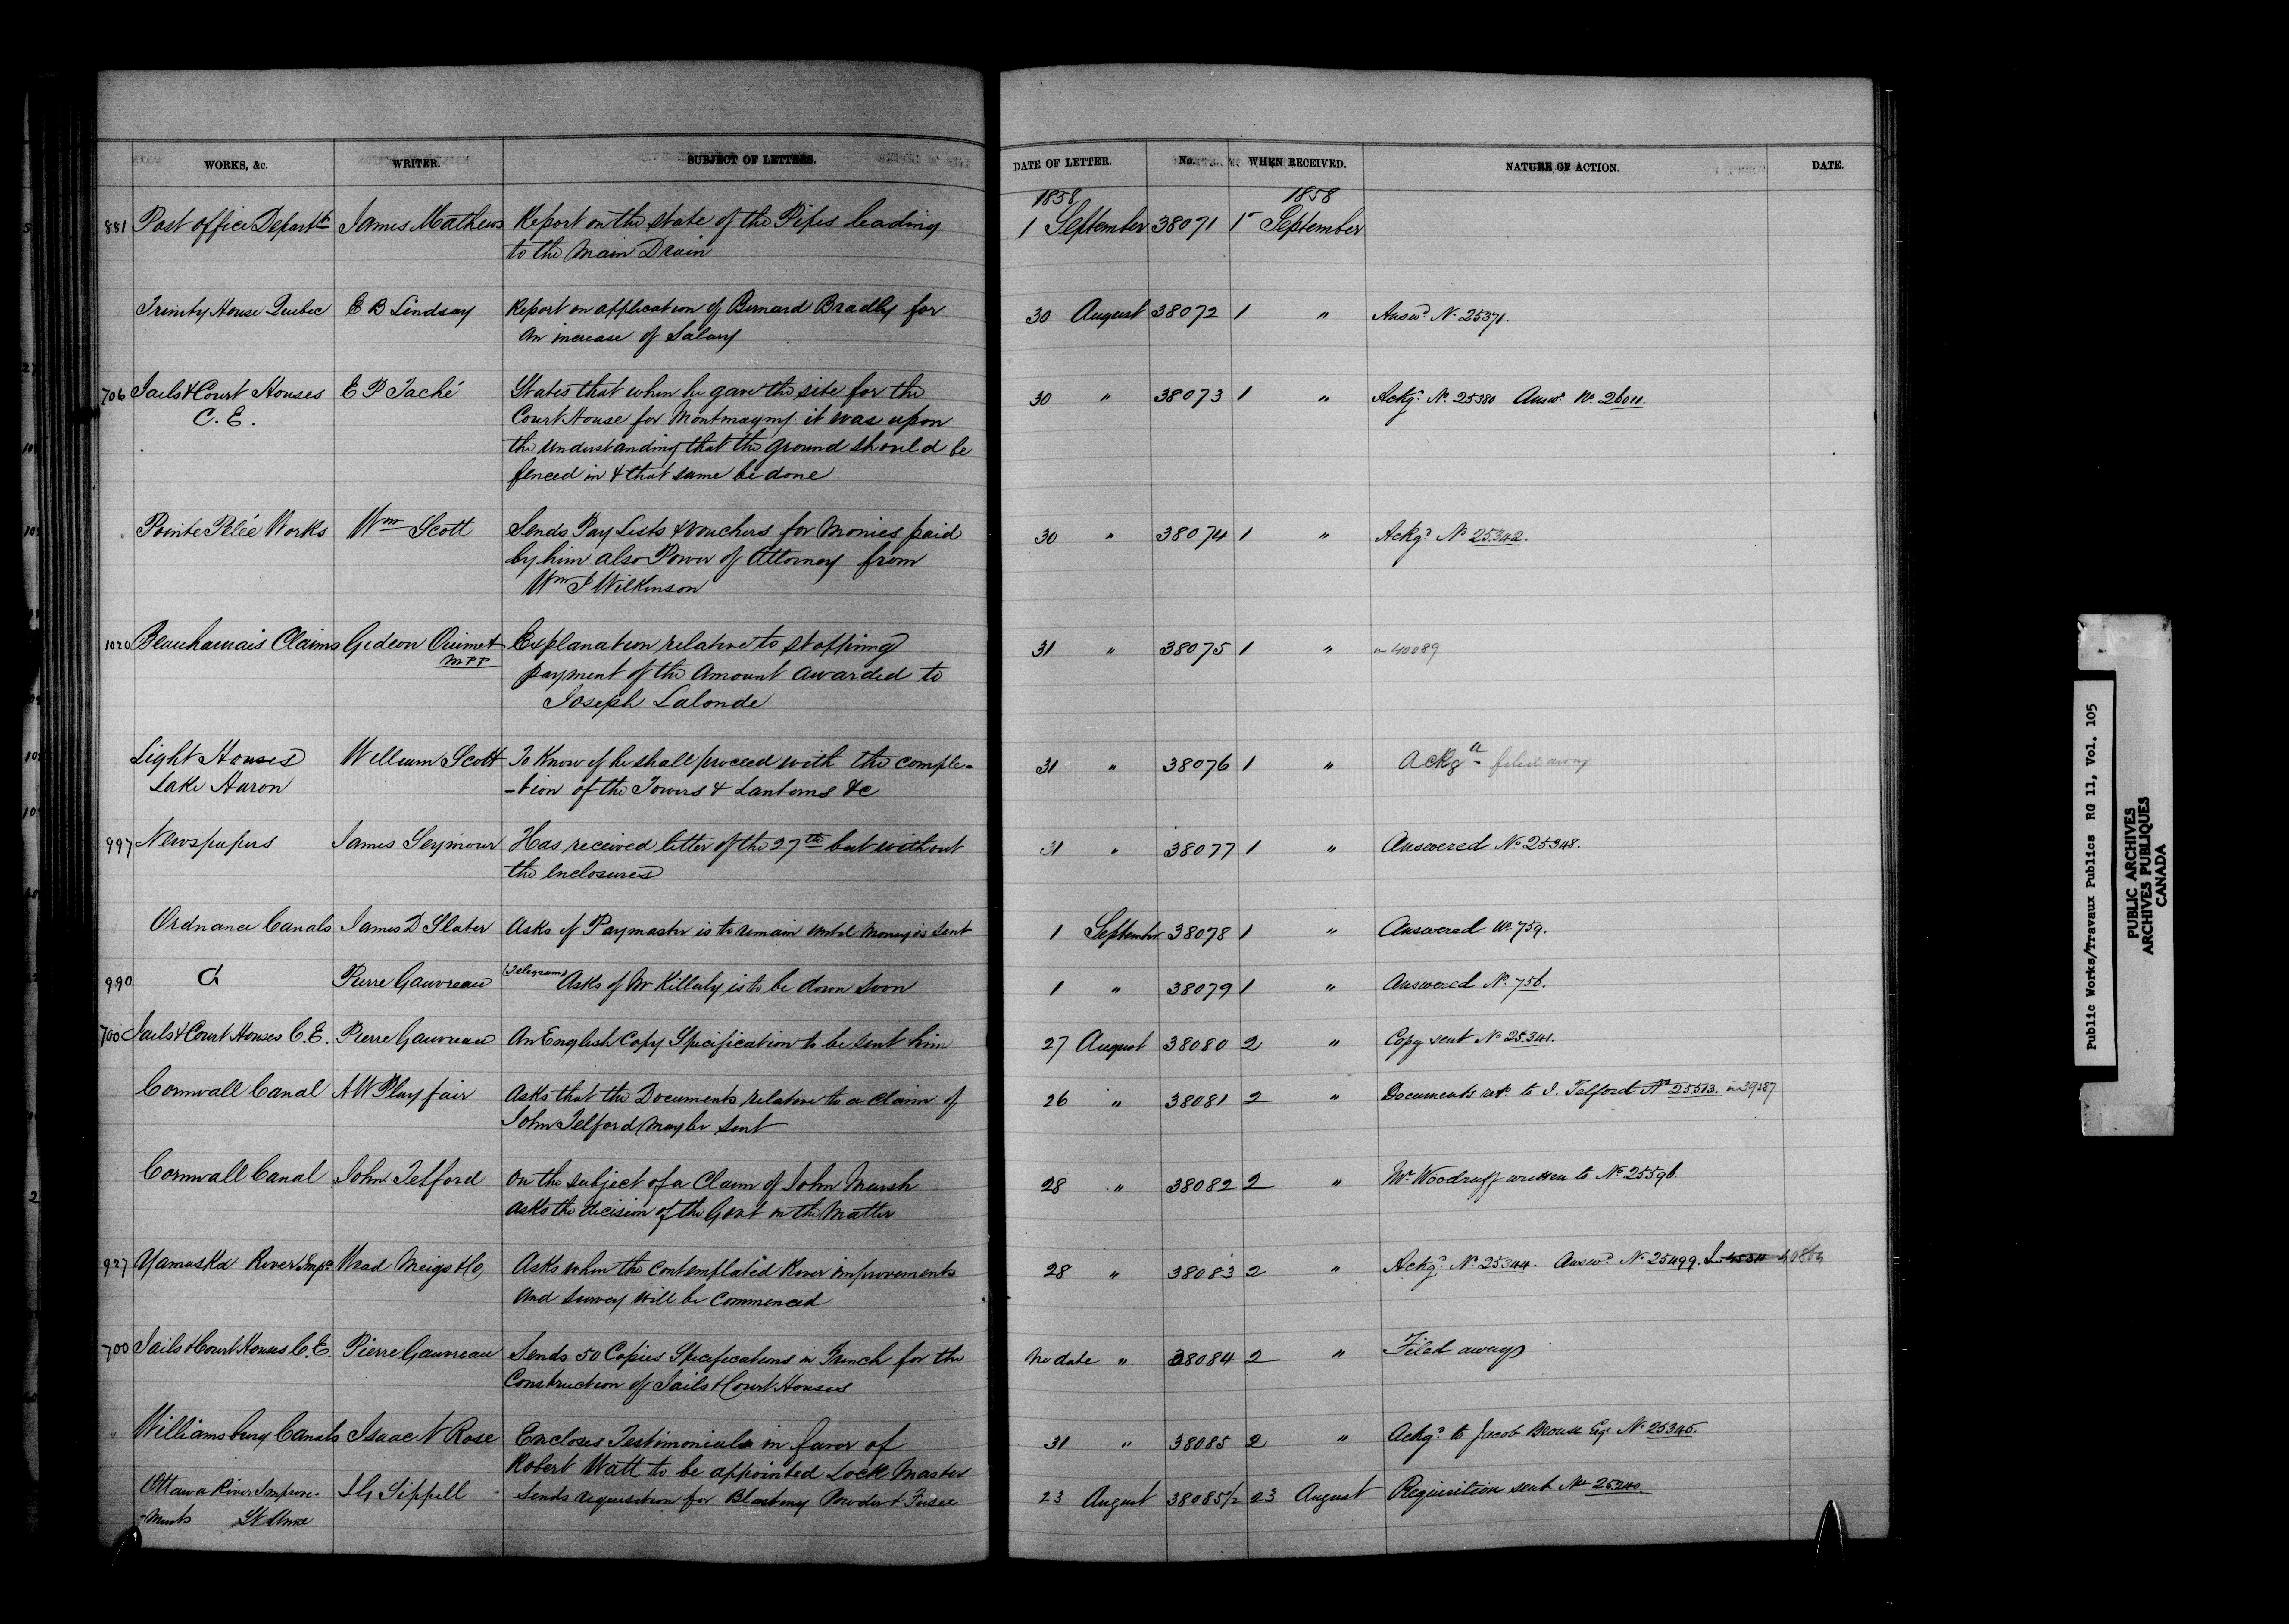 WORKS, &c. WRITER. SUBJECT OF LETTERS. DATE OF LETTER. No. WHEN RECEIVED. NATURE OF ACTION. DATE.
1858 1858
881 Post office Departt James Mathews Report on the state of the Pipes leading 1 September 38071 1 September
to the Main Drain
Trinity House Quebec E B Lindsay Report on application of Bernard Bradly for 30 August 38072 1 " Answd No 25371.
an increase of Salary
706 Jails & Court Houses E P Taché States that when he gave the site for the 30 " 38073 1 " Ackgd No 25380 Answd No 26011.
C. E. Court House for Montmagny it was upon
the understanding that the ground should be
fenced in & that same be done
Pointe Pelée Works Wm Scott Sends Pay Lists & vouchers for Monies paid 30 " 38074 1 " Ackgd No 25342.
by him also Power of Attorney from
Wm J Wilkinson
1020 Beauharnais Claims Gedeon Ouimet Explanation relative to stopping 31 " 38075 1 " in 40089
MPP payment of the Amount awarded to
Joseph Lalonde
Light Houses William Scott To Know if he shall proceed with the comple- 31 " 38076 1 " Ackgd filed away
Lake Huron -tion of the Towers & Lanterns &c
997 Newspapers James Seymour Has received letter of the 27th but without 31 " 38077 1 " Answered No 25348.
the enclosures
Ordnance Canals James D Slater Asks if Paymaster is to remain until Money is sent 1 September 38078 1 " Answered No 759.
990 Do Pierre Gauvreau (Telegram) Asks if Mr Killaly is to be down soon 1 " 38079 1 " Answered No 756.
700 Jails & Court Houses C. E. Pierre Gauvreau An English Copy Specification to be sent him 27 August 38080 2 " Copy sent No 25341.
Cornwall Canal A W Playfair Asks that the Documents relative to a claim of 26 " 38081 2 " Documents retd to J. Telford No 25513. in 39287
John Telford may be sent
Cornwall Canal John Telford On the subject of a Claim of John Marsh 28 " 38082 2 " Mr Woodruff written to No 25596.
asks the decision of the Govt on the Matter
927 Yamaska River Impt Wead Meigs & Co Asks when the contemplated River improvements 28 " 38083 2 " Ackgd No 25344. Answd No 25499.
and survey will be commenced
700 Jails & Court Houses C. E. Pierre Gauvreau Sends 50 Copies Specifications in French for the No date " 38084 2 " Filed away
Construction of Jails & Court Houses
Williamsburg Canals Isaac N Rose Encloses Testimonials in favor of 31 " 38085 2 " Ackgd to Jacob Brouse Esqr No 25345.
Robert Watt to be appointed Lock Master
Ottawa River Improve- J G Sippell Sends requisition for Blasting Powder & Fusee 23 August 38085/2 23 August Requisition sent No 25240
-ments St Anne
Public Works/Travaux Publics RG 11, Vol. 105
PUBLIC ARCHIVES
ARCHIVES PUBLIQUES
CANADA